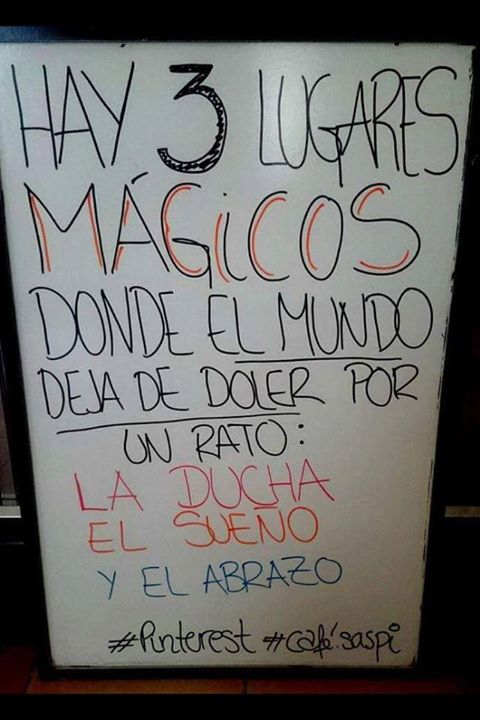 HAY 3 LUGARES
MÁGiCOS
DONDE EL MUNDO
DEJA DE DOLER POR
UN RATO:
LA DUCHA
EL SUEÑO
Y EL ABRAZO
#Pinterest #café.saspi